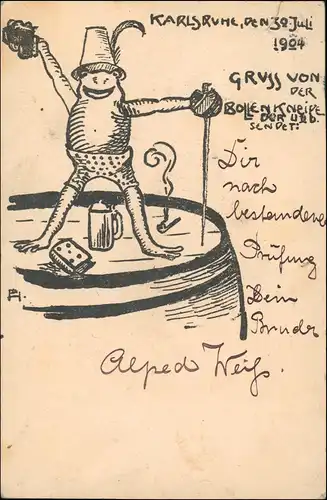 KARLSRUHE, DEN 30 JULI
1904
GRUSS VON
DER
BOLLENKNEIPE
DER
SENDET:
Dir
nach
bestandene
Prüfung
Dein
Bruder
Alfred Weiß.